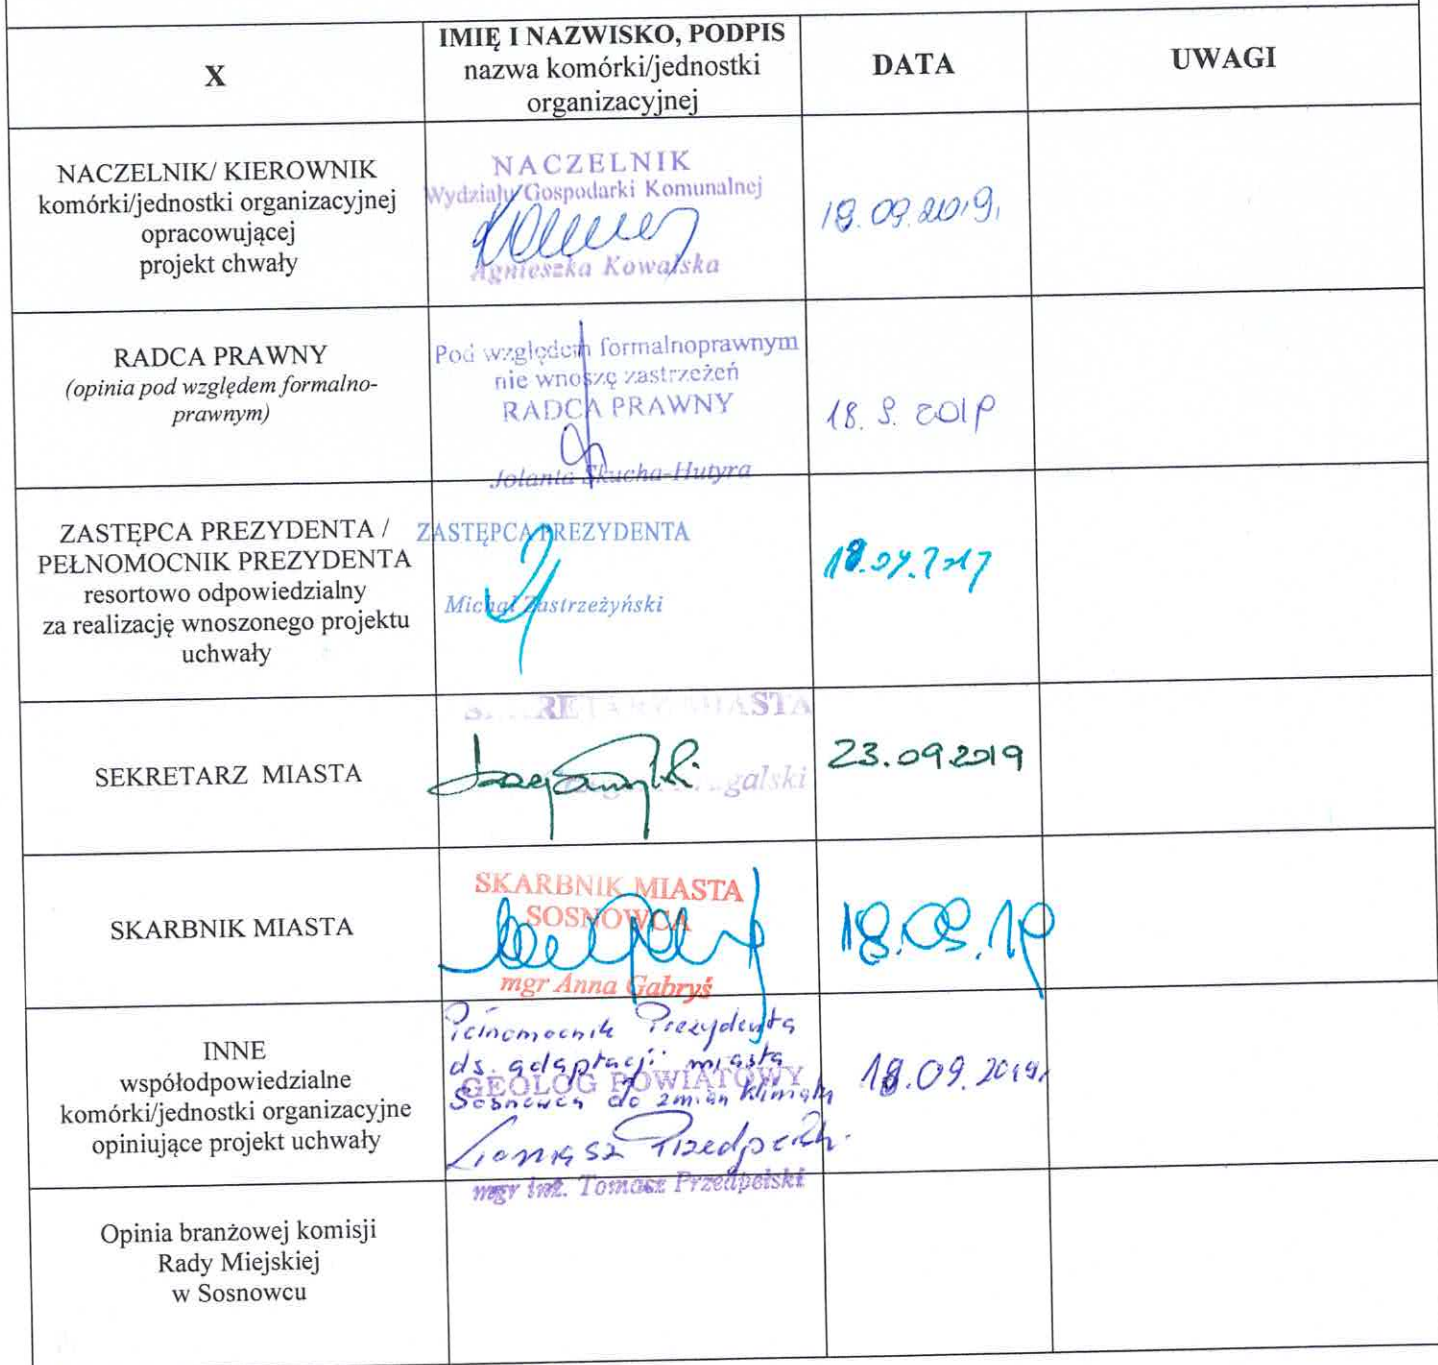 X
IMIĘ I NAZWISKO, PODPIS
nazwa komórki/jednostki
organizacyjnej
DATA
UWAGI
NACZELNIK/ KIEROWNIK
komórki/jednostki organizacyjnej
opracowującej
projekt chwały
NACZELNIK
Wydziału Gospodarki Komunalnej
Agnieszka Kowalska
18.09.2019.
RADCA PRAWNY
(opinia pod względem formalno-
prawnym)
Pod względem formalnoprawnym
nie wnoszę zastrzeżeń
RADCA PRAWNY
Jolanta Skucha-Hutyra
18. 9. 2019
ZASTĘPCA PREZYDENTA /
PEŁNOMOCNIK PREZYDENTA
resortowo odpowiedzialny
za realizację wnoszonego projektu
uchwały
ZASTĘPCA PREZYDENTA
Michał Zastrzeżyński
SEKRETARZ MIASTA
SEKRETARZ MIASTA
23.09.2019
SKARBNIK MIASTA
SKARBNIK MIASTA
SOSNOWCA
mgr Anna Gabryś
18.09.19
INNE
współodpowiedzialne
komórki/jednostki organizacyjne
opiniujące projekt uchwały
Pełnomocnik Prezydenta
ds. adaptacji miasta
GEOLOG POWIATOWY
Sosnowca do zmian klimatu
Tomasz Przedpełski
mgr inż. Tomasz Przedpełski
18.09.2019r
Opinia branżowej komisji
Rady Miejskiej
w Sosnowcu